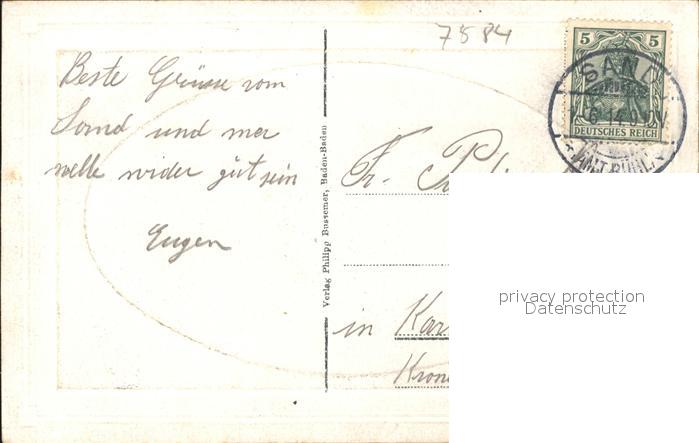 7584
Beste Grüsse vom
Sand und mer
welle wider gut sein
Eugen
Verlag Philipp Bussemer, Baden-Baden
5 5
DEUTSCHES REICH
SAND
6.14.9-10V
AMT BÜHL
Fr.
in Kar
Kron
privacy protection
Datenschutz